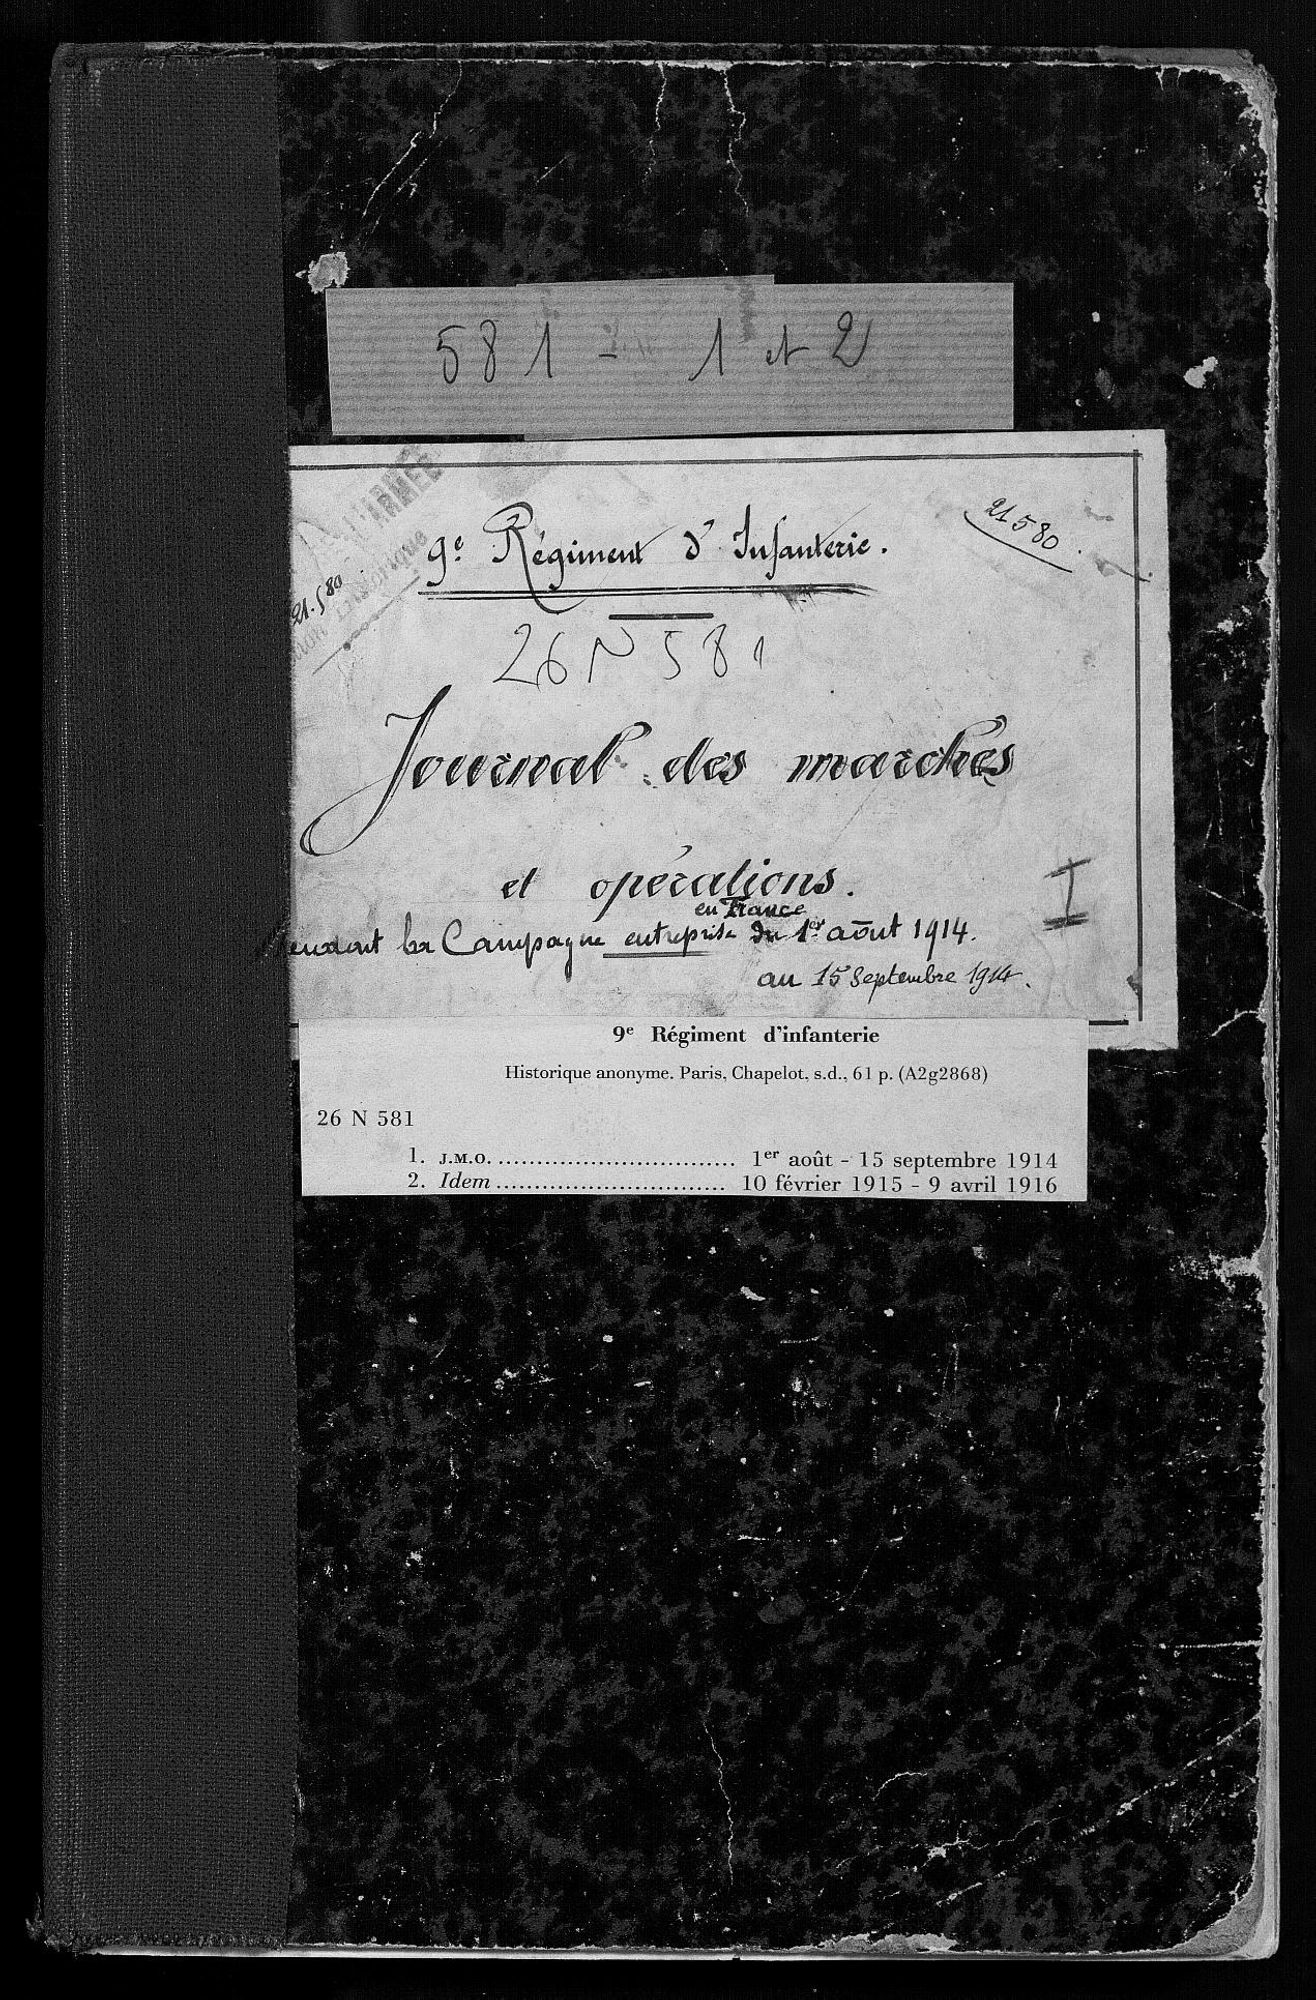 581 - 1 et 2
9e Régiment d'Infanterie.
21 580
21.580
ARMÉE
Historique
26 N 581
Journal des marches
et opérations.
en France
pendant la Campagne entreprise du 1er août 1914.
au 15 Septembre 1914.
I
9e Régiment d'infanterie
Historique anonyme. Paris, Chapelot, s.d., 61 p. (A2g2868)
26 N 581
1. J.M.O. .............................. 1er août - 15 septembre 1914
2. Idem .............................. 10 février 1915 - 9 avril 1916